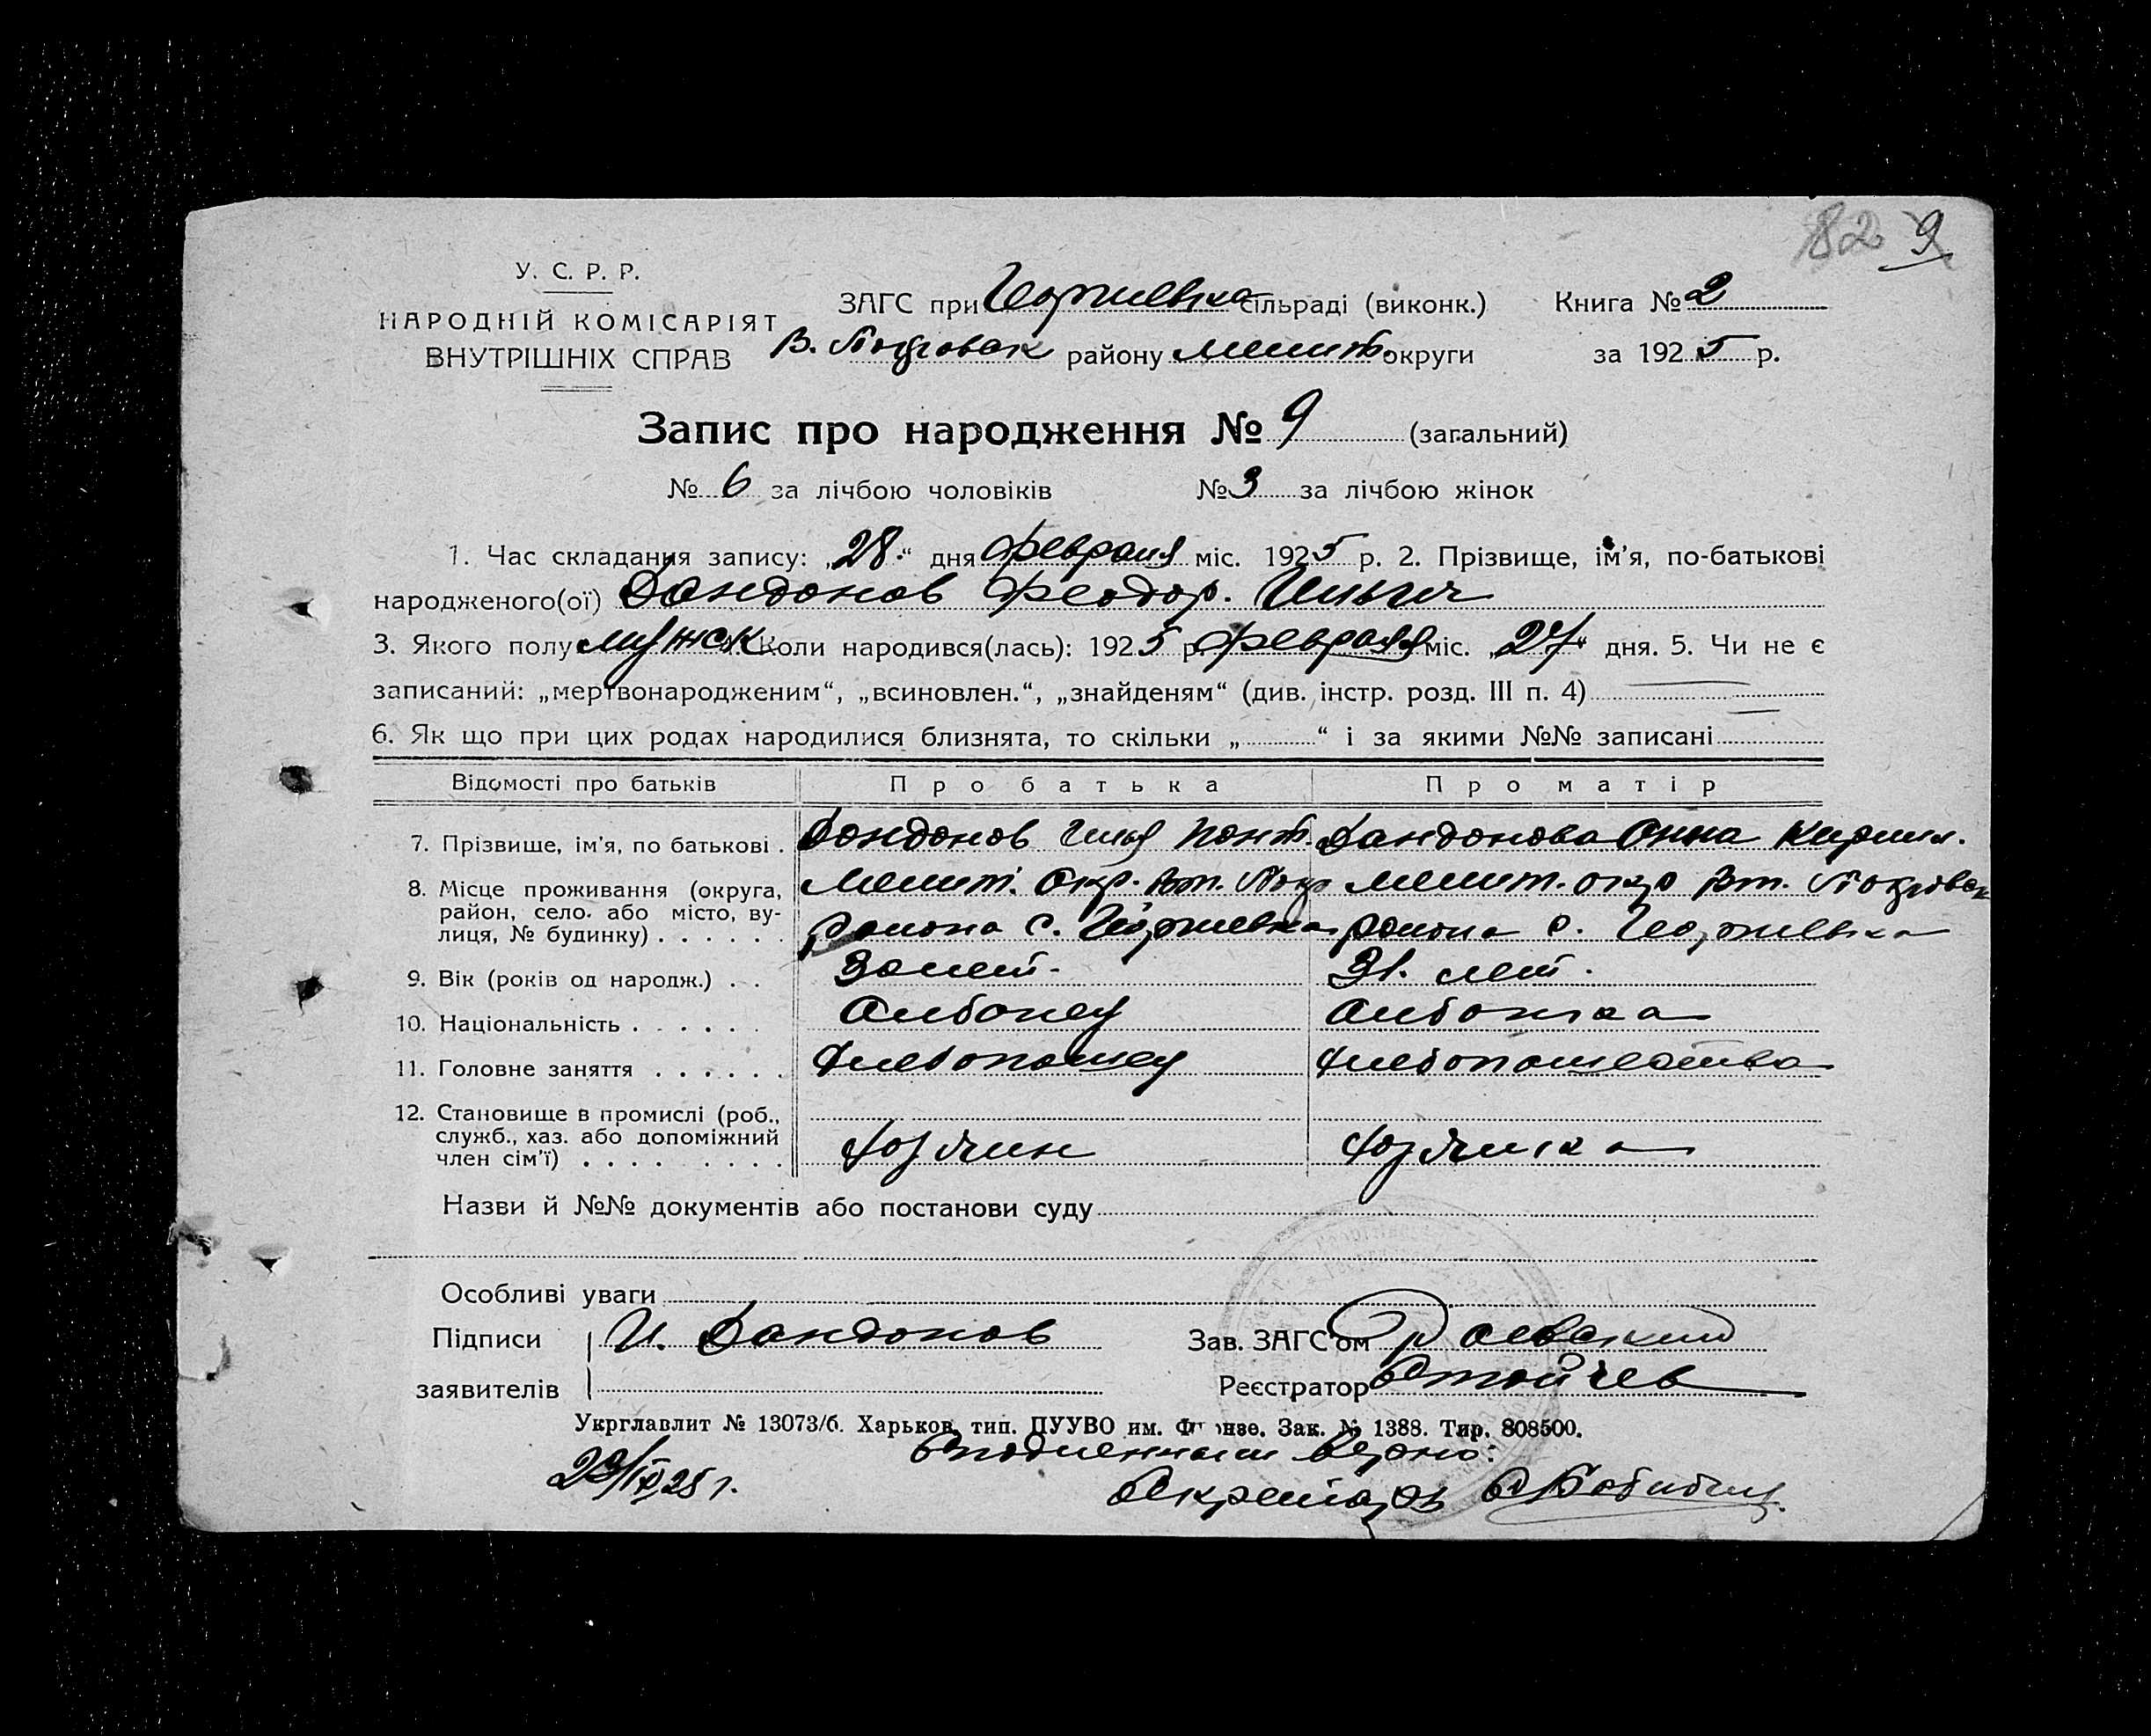 82 9
У. С. Р. Р.
НАРОДНІЙ КОМІСАРІЯТ
ВНУТРІШНІХ СПРАВ
ЗАГС при Георгиевка сільраді (виконк.) Книга № 2
В. Покровск району Мелит. округи за 1925 р.
Запис про народження № 9 (загальний)
№ 6 за лічбою чоловіків № 3 за лічбою жінок
1. Час складання запису: „28“ дня Февраля міс. 1925 р. 2. Прізвище, ім'я, по-батькові
народженого(ої) Дандонов Феодор. Ильич
3. Якого полу мужск Коли народився(лась): 1925 р. Февраля міс. „27“ дня. 5. Чи не є
записаний: „мертвонародженим“, „всиновлен.“, „знайденям“ (див. інстр. розд. III п. 4)
6. Як що при цих родах народилися близнята, то скільки „ “ і за якими №№ записані
Відомості про батьків Про батька Про матір
7. Прізвище, ім'я, по батькові . Дондонов Илья Конт. Дандонова Анна Кирил.
8. Місце проживання (округа, Мелит. Окр. Вт. Покр Мелит. окр Вт. Покровск
район, село або місто, ву-
лиця, № будинку) . . . . . . района с. Георгиевка района с. Георгиевка
9. Вік (років од народж.) . . 30 лет. 31. лет.
10. Національність . . . . . . Албанец Албанка
11. Головне заняття . . . . . . Хлебопашец Хлебопашества
12. Становище в промислі (роб.,
служб., хаз. або допоміжний
член сім'ї) . . . . . . . . Хозяин Хозяйка
Назви й №№ документів або постанови суду
Особливі уваги
Підписи И. Дандонов Зав. ЗАГС'ом Раевский
заявителів Реєстратор Стойчев
Укрглавлит № 13073/б. Харьков, тип. ПУУВО им. Фрунзе. Зак. № 1388. Тир. 808500.
С подленным верно:
29/IX 25 г.
Секретарь